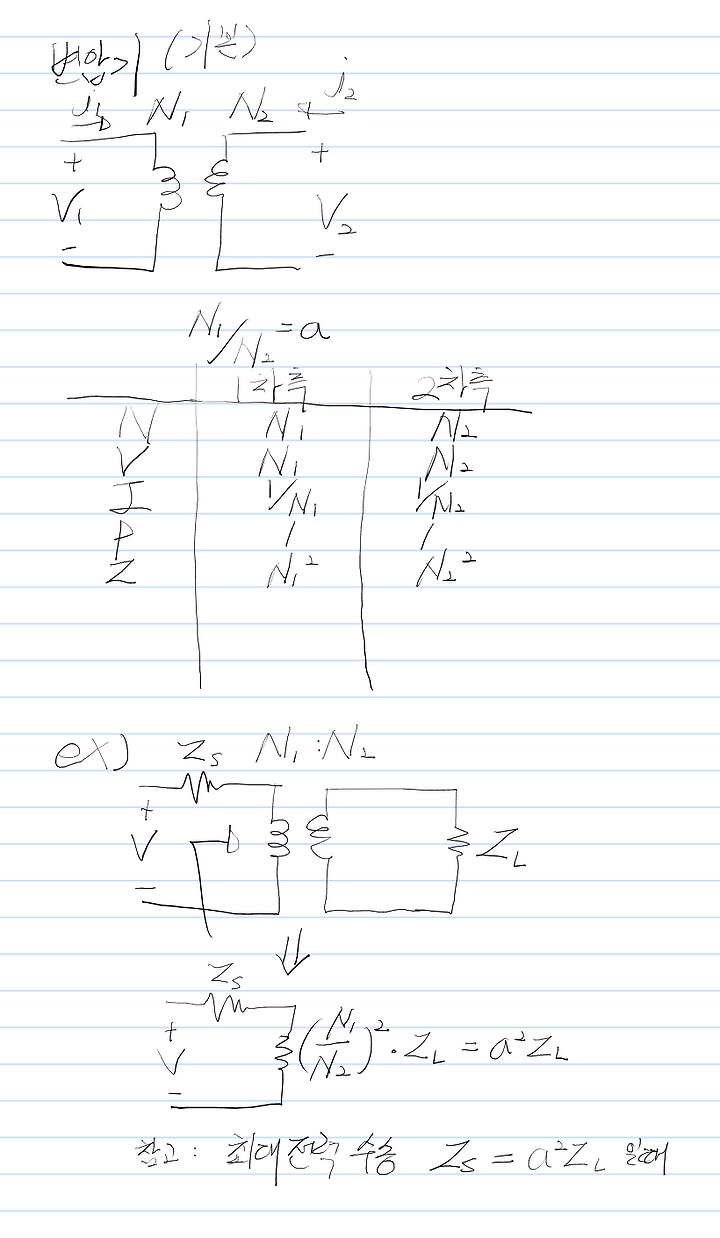 변압기 (기본)
j₁ N₁ N₂ j₂
+ +
V₁ V₂
- -
N₁/N₂ = a
1차측 2차측
N N₁ N₂
V N₁ N₂
I 1/N₁ 1/N₂
P 1 1
Z N₁² N₂²
ex) Zs N₁ : N₂
+
V ZL
-
⇓
Zs
+
V (N₁/N₂)² · ZL = a²ZL
-
참고 : 최대전력 수송 Zs = a²ZL 일때